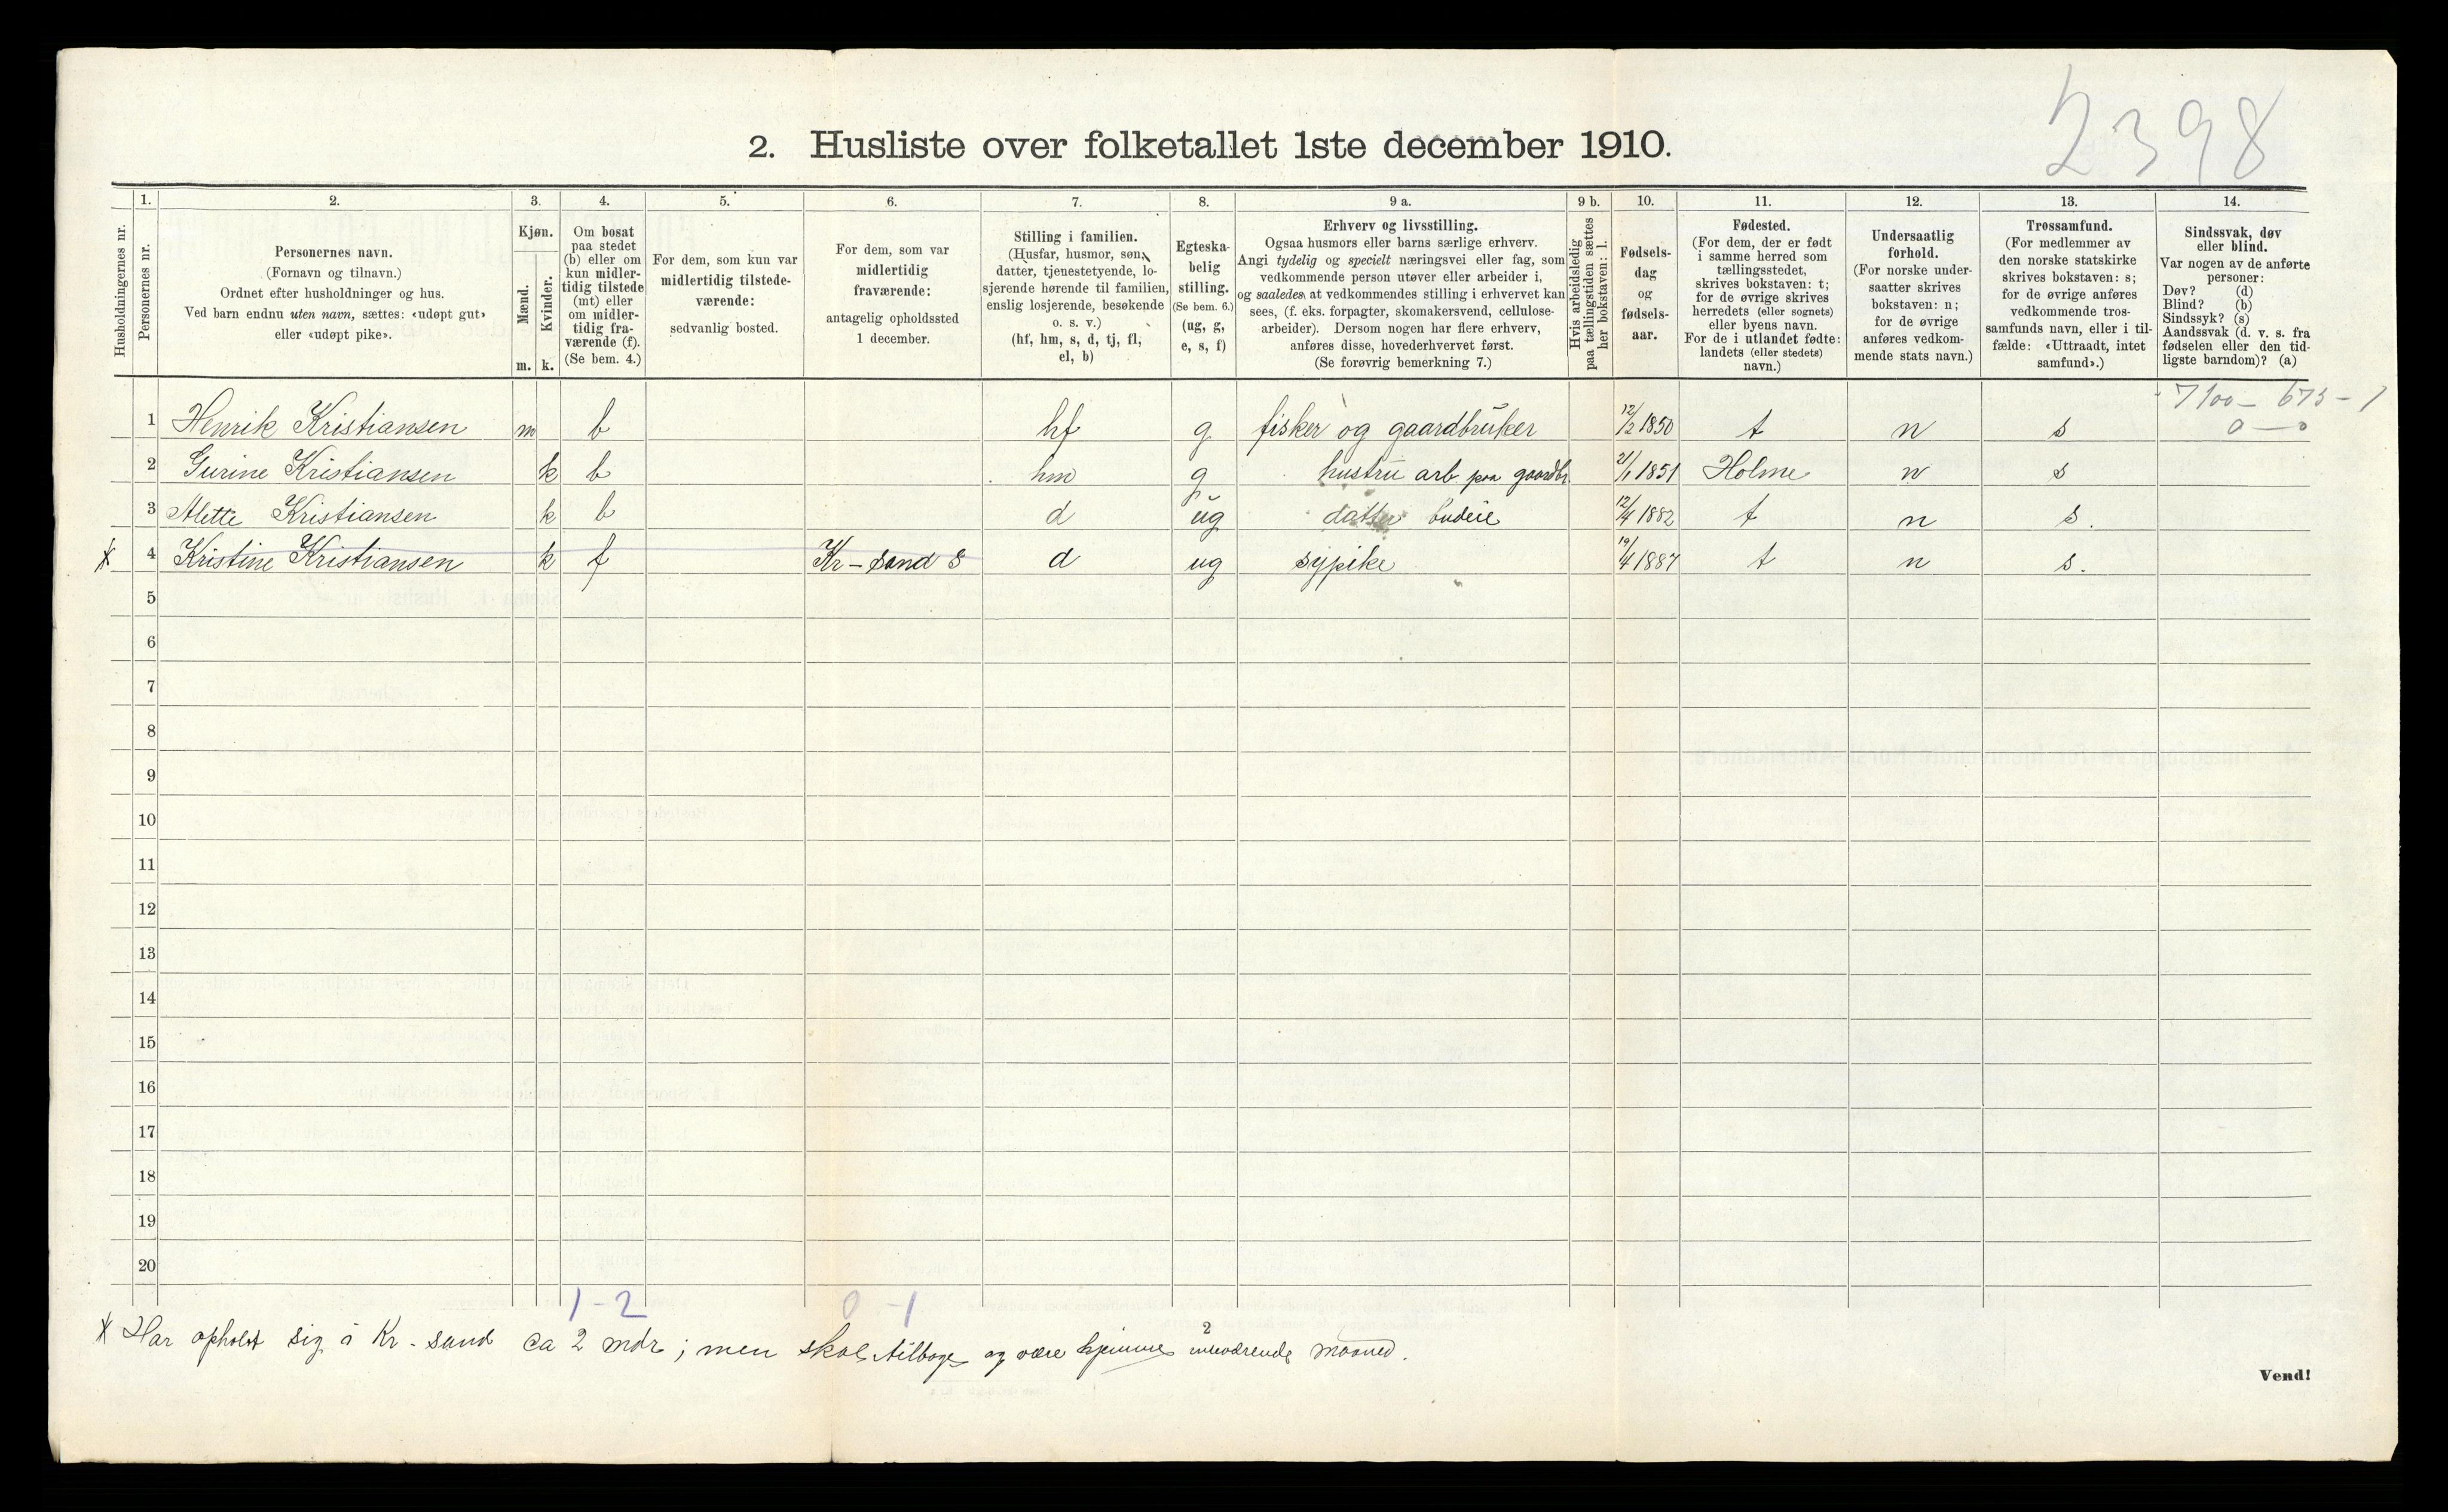 2398
2. Husliste over folketallet 1ste december 1910.
Husholdningernes nr.
1. Personernes nr.
2. Personernes navn.
(Fornavn og tilnavn.)
Ordnet efter husholdninger og hus.
Ved barn endnu uten navn, sættes: «udøpt gut»
eller «udøpt pike».
3. Kjøn.
Mænd. Kvinder.
m. k.
4. Om bosat
paa stedet
(b) eller om
kun midler-
tidig tilstede
(mt) eller
om midler-
tidig fra-
værende (f).
(Se bem. 4.)
5. For dem, som kun var
midlertidig tilstede-
værende:
sedvanlig bosted.
6. For dem, som var
midlertidig
fraværende:
antagelig opholdssted
1 december.
7. Stilling i familien.
(Husfar, husmor, søn,
datter, tjenestetyende, lo-
sjerende hørende til familien,
enslig losjerende, besøkende
o. s. v.)
(hf, hm, s, d, tj, fl,
el, b)
8. Egteska-
belig
stilling.
(Se bem. 6.)
(ug, g,
e, s, f)
9 a. Erhverv og livsstilling.
Ogsaa husmors eller barns særlige erhverv.
Angi tydelig og specielt næringsvei eller fag, som
vedkommende person utøver eller arbeider i,
og saaledes at vedkommendes stilling i erhvervet kan
sees, (f. eks. forpagter, skomakersvend, cellulose-
arbeider). Dersom nogen har flere erhverv,
anføres disse, hovederhvervet først.
(Se forøvrig bemerkning 7.)
9 b. Hvis arbeidsledig
paa tællingstiden sættes
her bokstaven: l.
10. Fødsels-
dag
og
fødsels-
aar.
11. Fødested.
(For dem, der er født
i samme herred som
tællingsstedet,
skrives bokstaven: t;
for de øvrige skrives
herredets (eller sognets)
eller byens navn.
For de i utlandet fødte:
landets (eller stedets)
navn.)
12. Undersaatlig
forhold.
(For norske under-
saatter skrives
bokstaven: n;
for de øvrige
anføres vedkom-
mende stats navn.)
13. Trossamfund.
(For medlemmer av
den norske statskirke
skrives bokstaven: s;
for de øvrige anføres
vedkommende tros-
samfunds navn, eller i til-
fælde: «Uttraadt, intet
samfund».)
14. Sindssvak, døv
eller blind.
Var nogen av de anførte
personer:
Døv? (d)
Blind? (b)
Sindssyk? (s)
Aandssvak (d. v. s. fra
fødselen eller den tid-
ligste barndom)? (a)
7100 – 673 – 1
0 — 0
1 Henrik Kristiansen m b hf g fisker og gaardbruker 12/2 1850 t n s
2 Gurine Kristiansen k b hm g hustru arb paa gaardbr. 21/1 1851 Holme n s
3 Alette Kristiansen k b d ug datter budeie 12/4 1882 t n s.
X 4 Kristine Kristiansen k f Kr-sand S d ug sypike 19/4 1887 t n s.
5
6
7
8
9
10
11
12
13
14
15
16
17
18
19
20
1-2 0-1
X Har opholdt sig i Kr-sand ca 2 mdr; men skal tilbage og være hjemme inneværende maaned.
2
Vend!